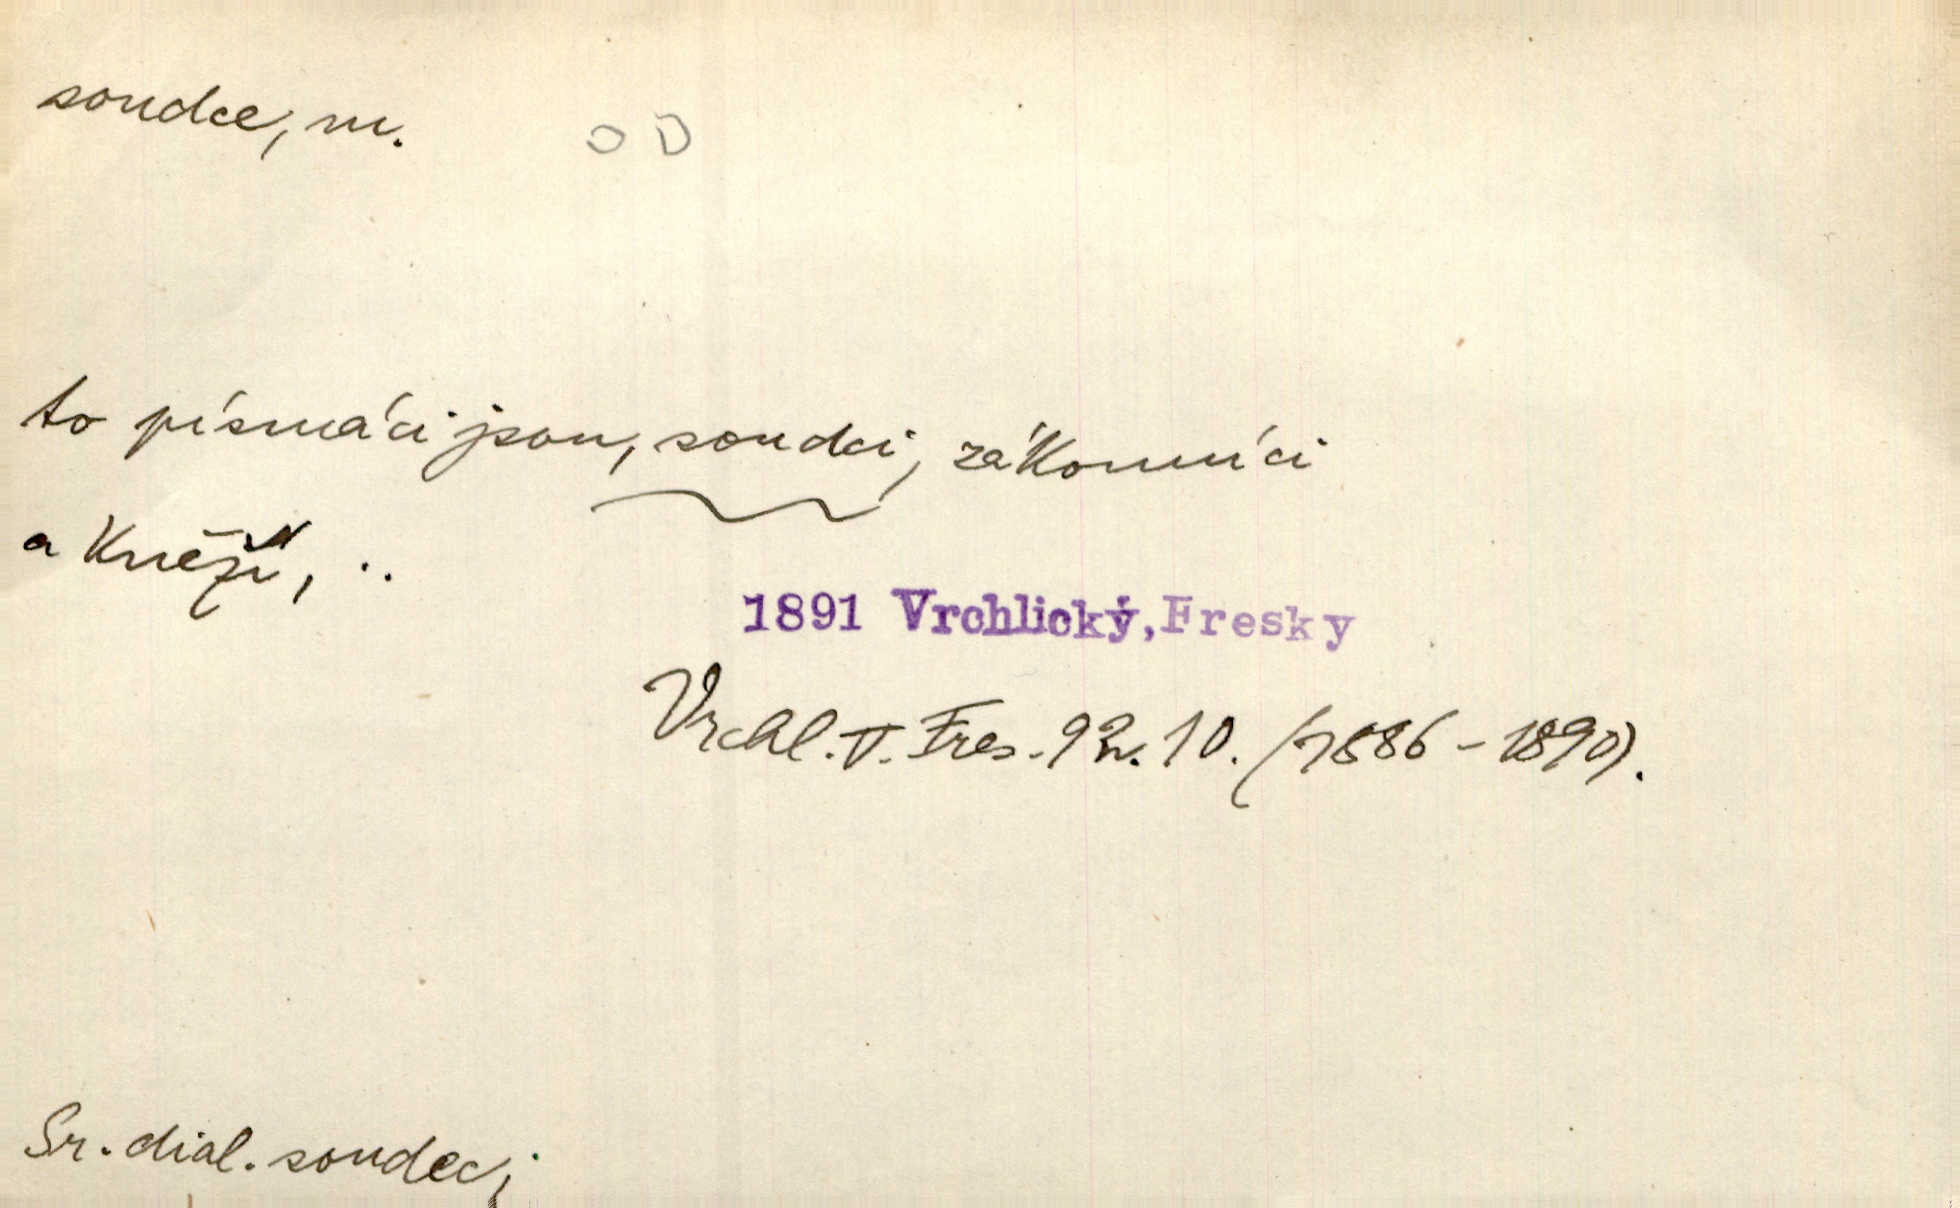 soudce, m.
to písmáci jsou, soudci, zákonníci
a kněží, ..
1891 Vrchlický, Fresky
Vrchl. V. Fres. 92. 10. (1886-1890).
Sr. dial. soudec;